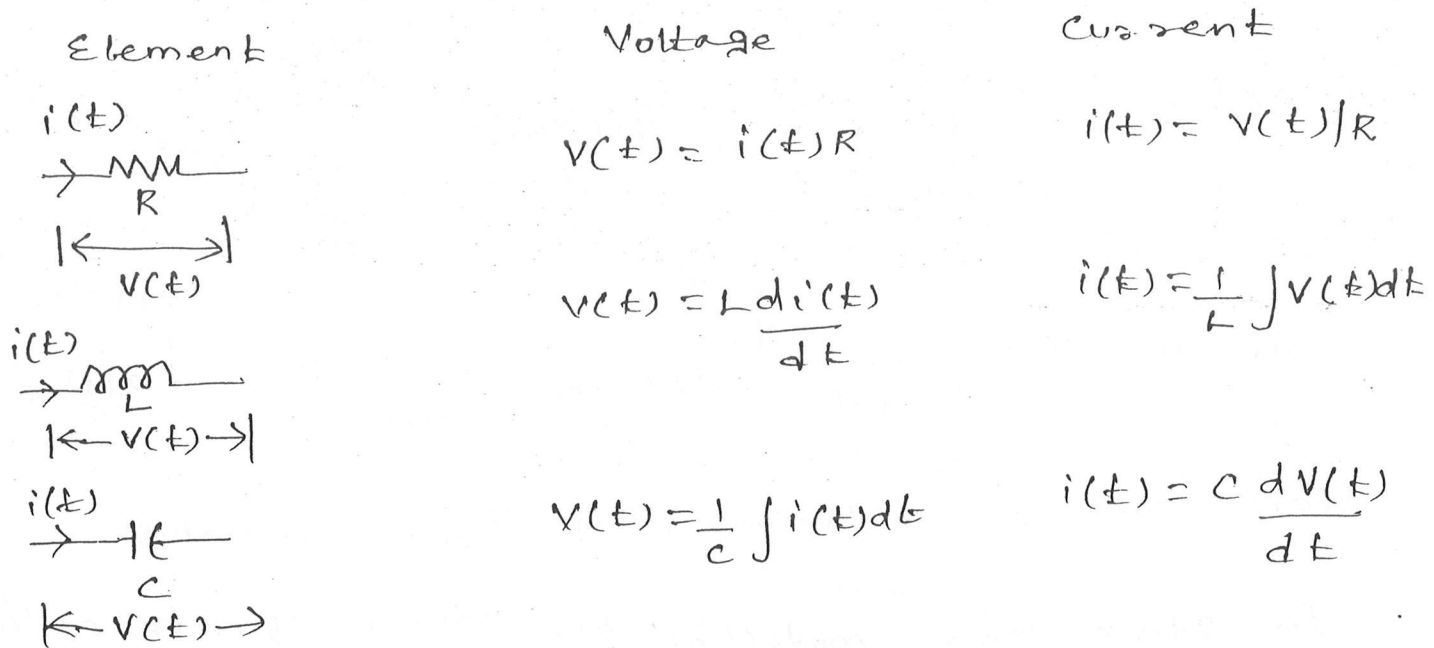 Element Voltage Current
i(t)
R
V(t)
V(t) = i(t)R
i(t) = V(t)/R
i(t)
L
V(t)
V(t) = L di(t)/dt
i(t) = 1/L ∫V(t)dt
i(t)
C
V(t)
V(t) = 1/C ∫i(t)dt
i(t) = C dV(t)/dt